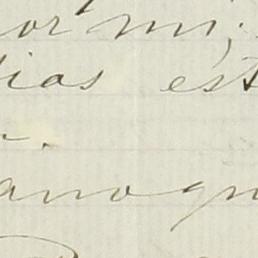 or mi;
dias est
anogn